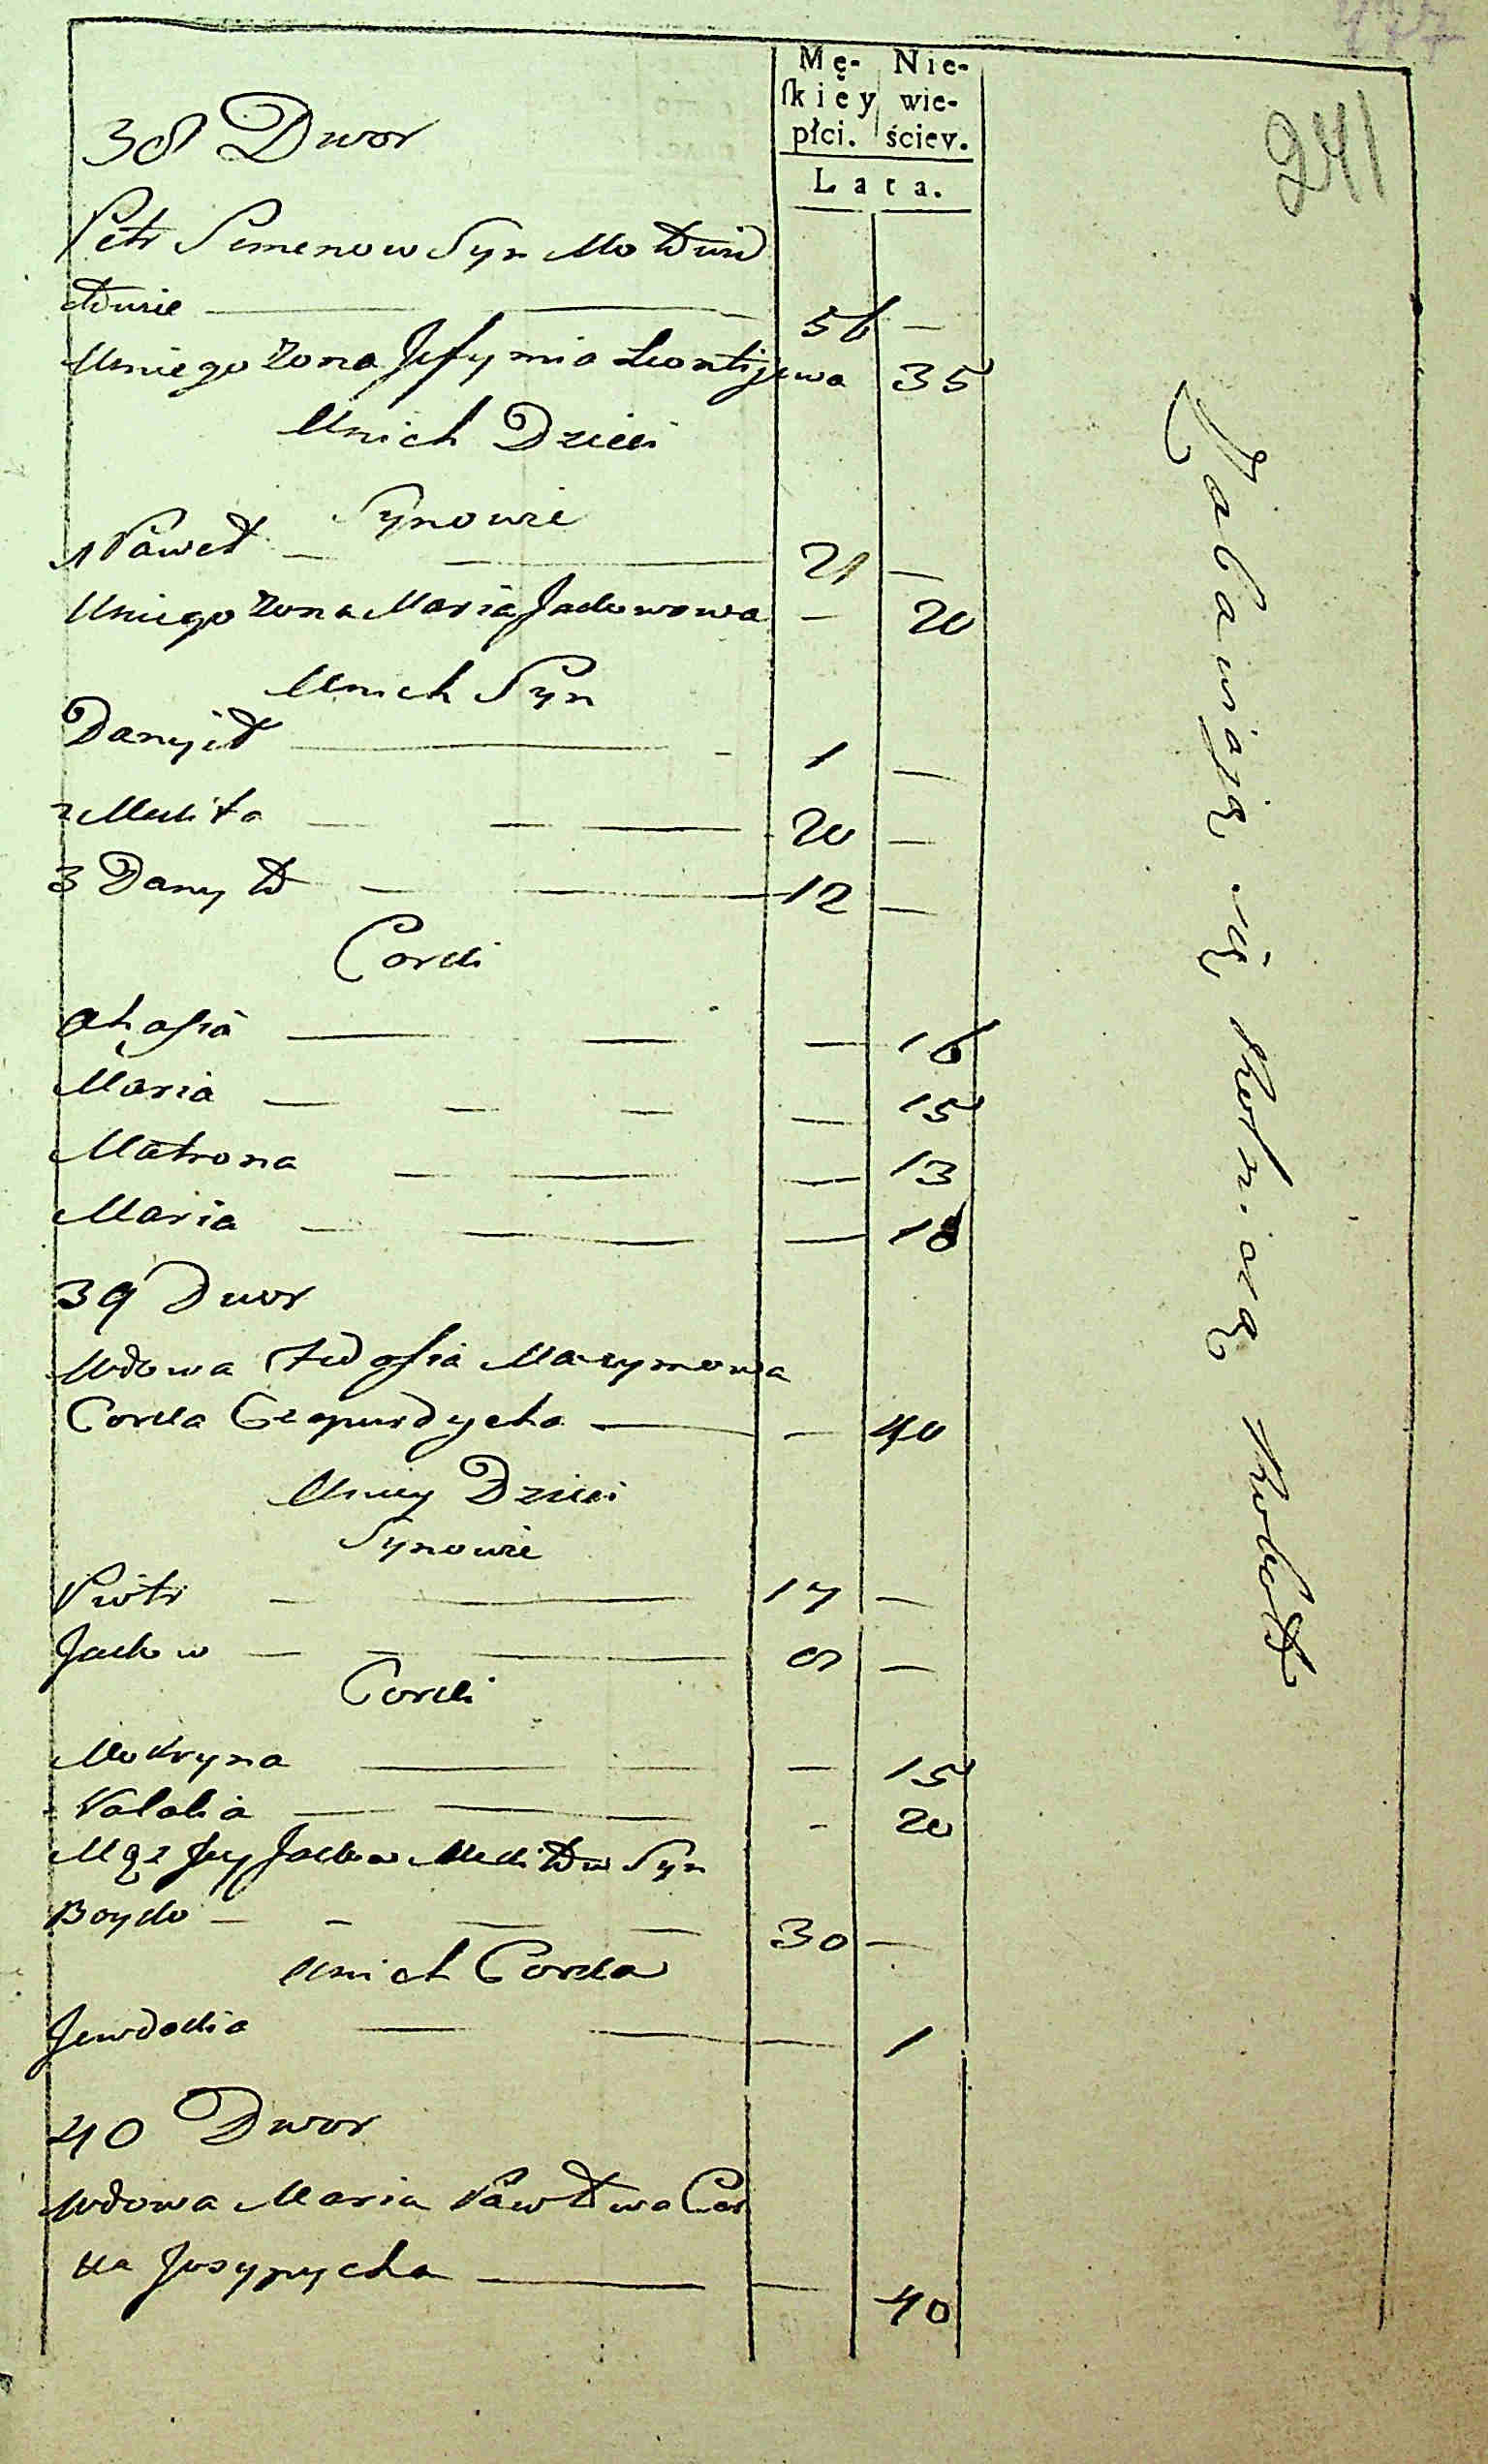 241
Mę- Nie-
skiey wie-
płci. ściey.
Lata.
38 Dwor
Petr Semenow Syn
56 —
Uniego Zona Jefymia Leontijewa 35
Unich Dzieci
Synowie
1 Paweł — — 21 —
Uniego Zona Maria Jackowowa — 20
Unich Syn
Danyił — - 1 —
2 Mikita — — — 20 —
3 Danyło — — 12 —
Corki
Ahafia — — — 16
Maria — — — — 15
Matrona — — — 13
Maria — — — 18
39 Dwor
Wdowa Fedosia Maxymowa
Corka — — 40
Uniey Dzieci
Synowie
Piotr — — 17 —
Jackow — — — 9 —
Corki
Mokryna — — — 15
Natalia — — - 20
Mąz Jey Jackow Mikitow Syn
Boyko — - — — 30 —
Unich Corka
Jewdokia — — — 1
40 Dwor
Wdowa Maria Pawłowa Cor
ka Josypycha — — 40
Zabawiają się Rolniczą Robotą